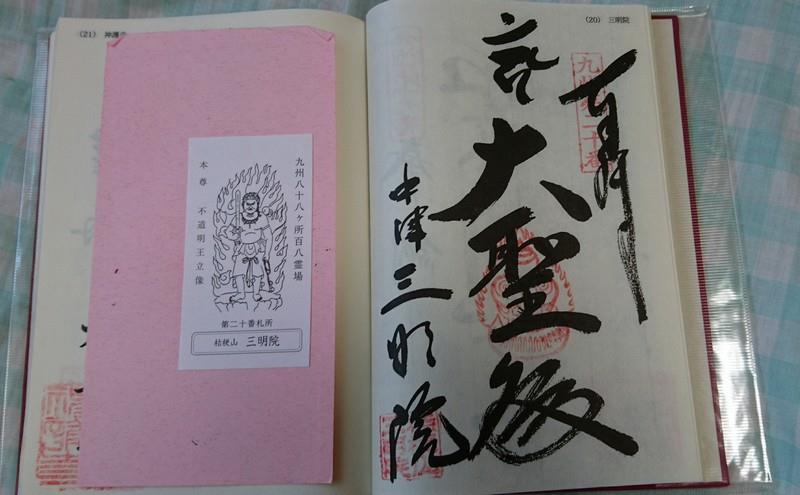 (20) 三明院
奉拝
九州第二十番
大聖殿
中津三明院
(21) 神護
九州八十八ヶ所百八霊場
本尊 不道明王立像
第二十番札所
桔梗山 三明院